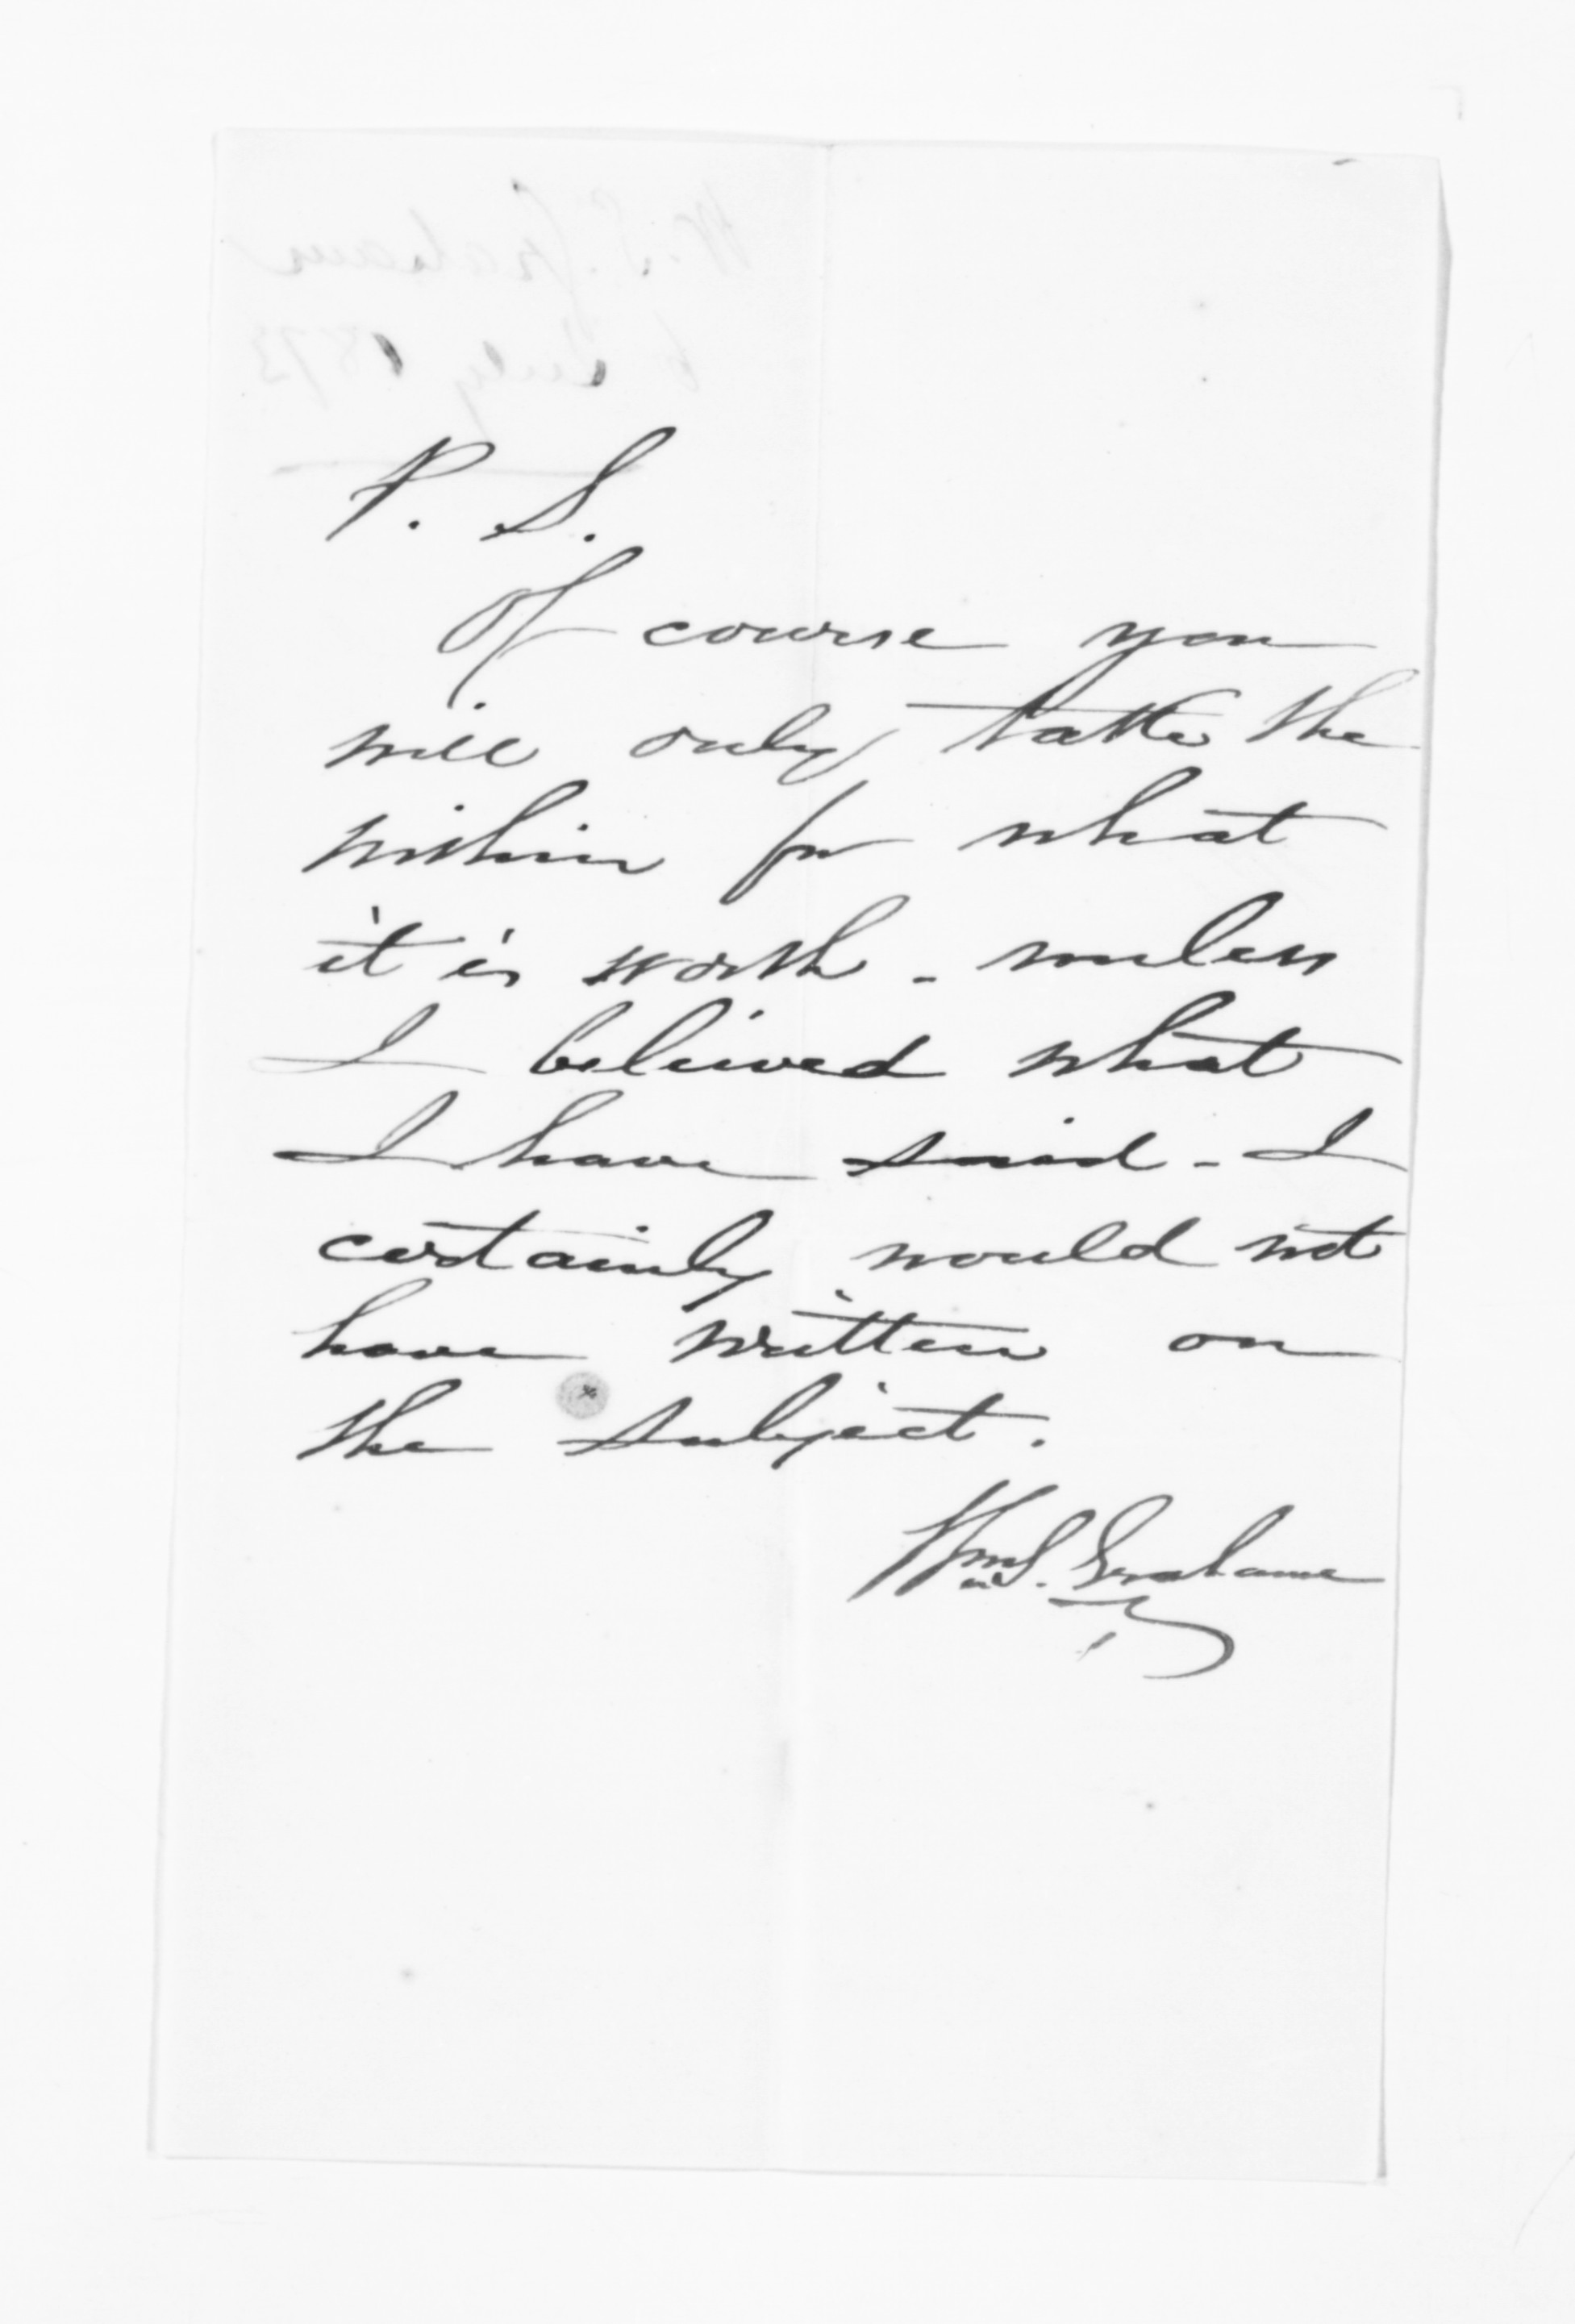 W. S. Graham
6 July 1873
P. S.
Of course you
will only take the
within for what
it is worth - unless
I believed what
I have said - I
certainly would not
have written on
the subject.
Wm S. Grahame